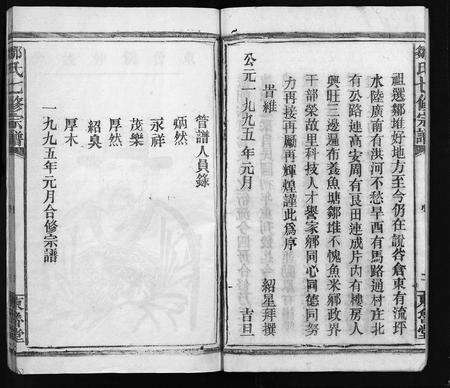 鄒氏七修宗譜
祖選鄒堆好地方至今仍在說谷倉東有流坪
水陸廣南有洪河不愁旱西有馬路通村庄北
有公路連高安周有良田連成片內有樓房人
興旺三邊遍布養魚塘鄒堆不愧魚米鄉政界
干部榮故里科技人才譽家鄉同心同德同努
力再接再勵再輝煌謹此為序
貴維 紹星拜撰
公元一九九五年元月 吉旦
東魯堂
鄒氏七修宗譜
管譜人員錄
炳然
永祥
茂樂
厚然
紹臭
厚木
一九九五年元月合修宗譜
東魯堂